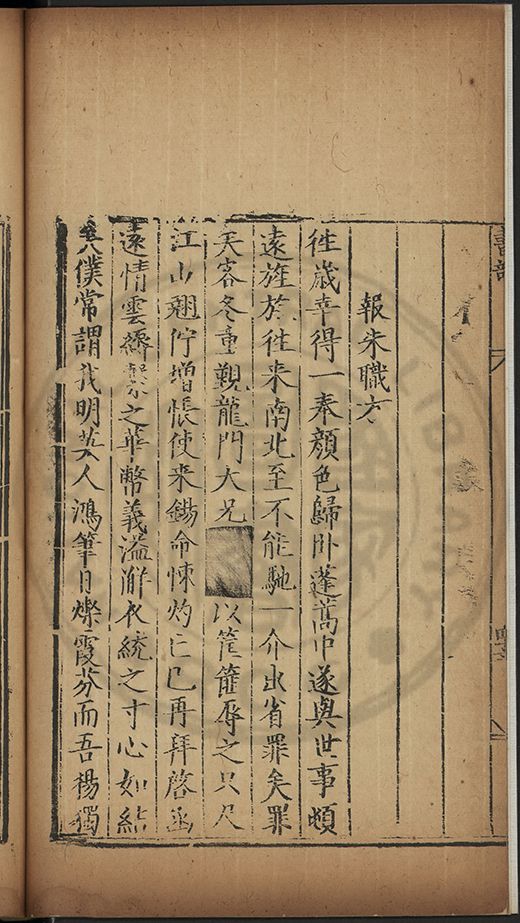 書部
報朱職方
徃歲幸得一奉顔色歸卧蓬蒿中遂與世事頓
遠旌於徃来南北至不能馳一介出省罪矣罪
矣客冬童觀龍門大兄以筐篚辱之只尺
江山翹佇增悵使来錫命悚灼仁已再拜啓函
遠情雲繑之華幣義溢觧衣統之寸心如結
矣僕常謂我明英人鴻筆日爍霞芬而吾楊獨